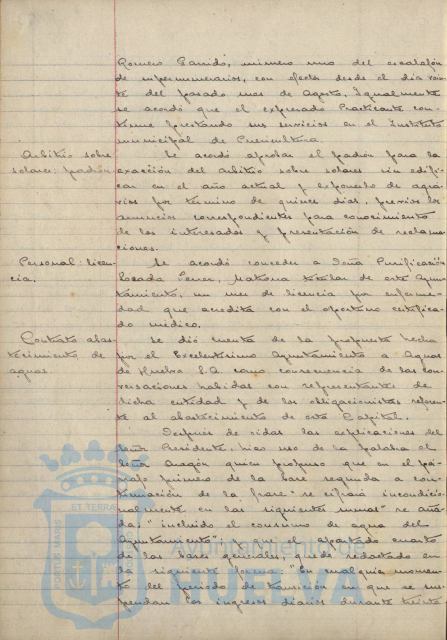 Romero Garrido, número uno del escalafón
de supernumerarios, con efectos desde el día vein
te del pasado mes de Agosto. Igualmente
se acordó que el expresado Practicante con-
tinue prestando sus servicios en el Instituto
municipal de Puericultura
Arbitrio sobre solares: padrón
Se acordó aprobar el padrón para la
exacción del arbitrio sobre solares sin edifi-
car en el año actual y exponerlo de agra-
vios por término de quince días, previos los
anuncios correspondientes para conocimiento
de los interesados y presentación de reclama-
ciones.
Personal: licen-
cia.
Se acordó conceder a Doña Purificación
Matrona titular de este Ayun-
tamiento, un mes de licencia por enferme-
dad que acredita con el oportuno certifica-
do médico.
Contrato abas-
tecimiento de
aguas
Se dió cuenta de la propuesta hecha
por el Excelentísimo Ayuntamiento a Aguas
de Huelva S.A. como consecuencia de las con-
versaciones habidas con representantes de
dicha entidad y de los obligacionistas referen-
te al abastecimiento de esta Capital.
Después de oidas las explicaciones del
Señor Presidente, hizo uso de la palabra el
Señor Aragón quien propuso que en el pá-
rrafo primero de la base segunda a con-
tinuación de la frase "se cifrará incondicio-
nalmente en las siguientes sumas" se aña-
da, "incluido el consumo de agua del
Ayuntamiento"; y que el apartado cuarto
de las bases generales, quede redactado en
la siguiente forma: "En cualquier momen-
to del periodo de transición en que se sus-
pendan los ingresos diarios durante treinta
PORTUS MARIS ET TERRAE
Ayuntamiento de
HUELVA